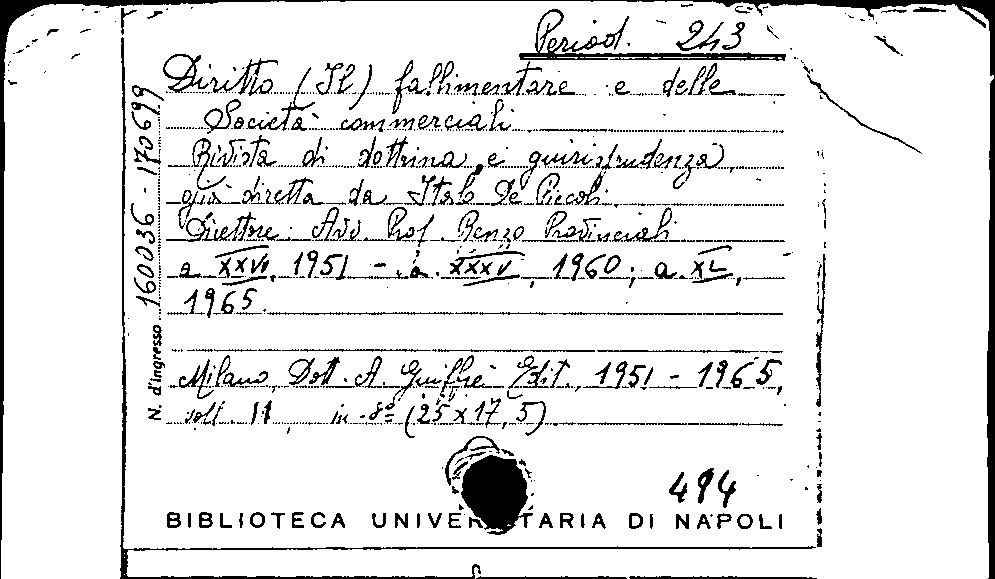 Period. 243
Diritto (Il) fallimentare e delle
Società commerciali
Rivista di dottrina e giurisprudenza,
già diretta da Italo De Piccoli.
Direttore: Avv. Prof. Renzo Provinciali
a. XXVI, 1951 - a. XXXV, 1960; a. XL,
1965.
Milano, Dott. A. Giuffrè Edit., 1951 - 1965,
voll. 11, in-8º (25 x 17,5).
N. d'ingresso 160036 - 170699
494
BIBLIOTECA UNIVER TARIA DI NAPOLI